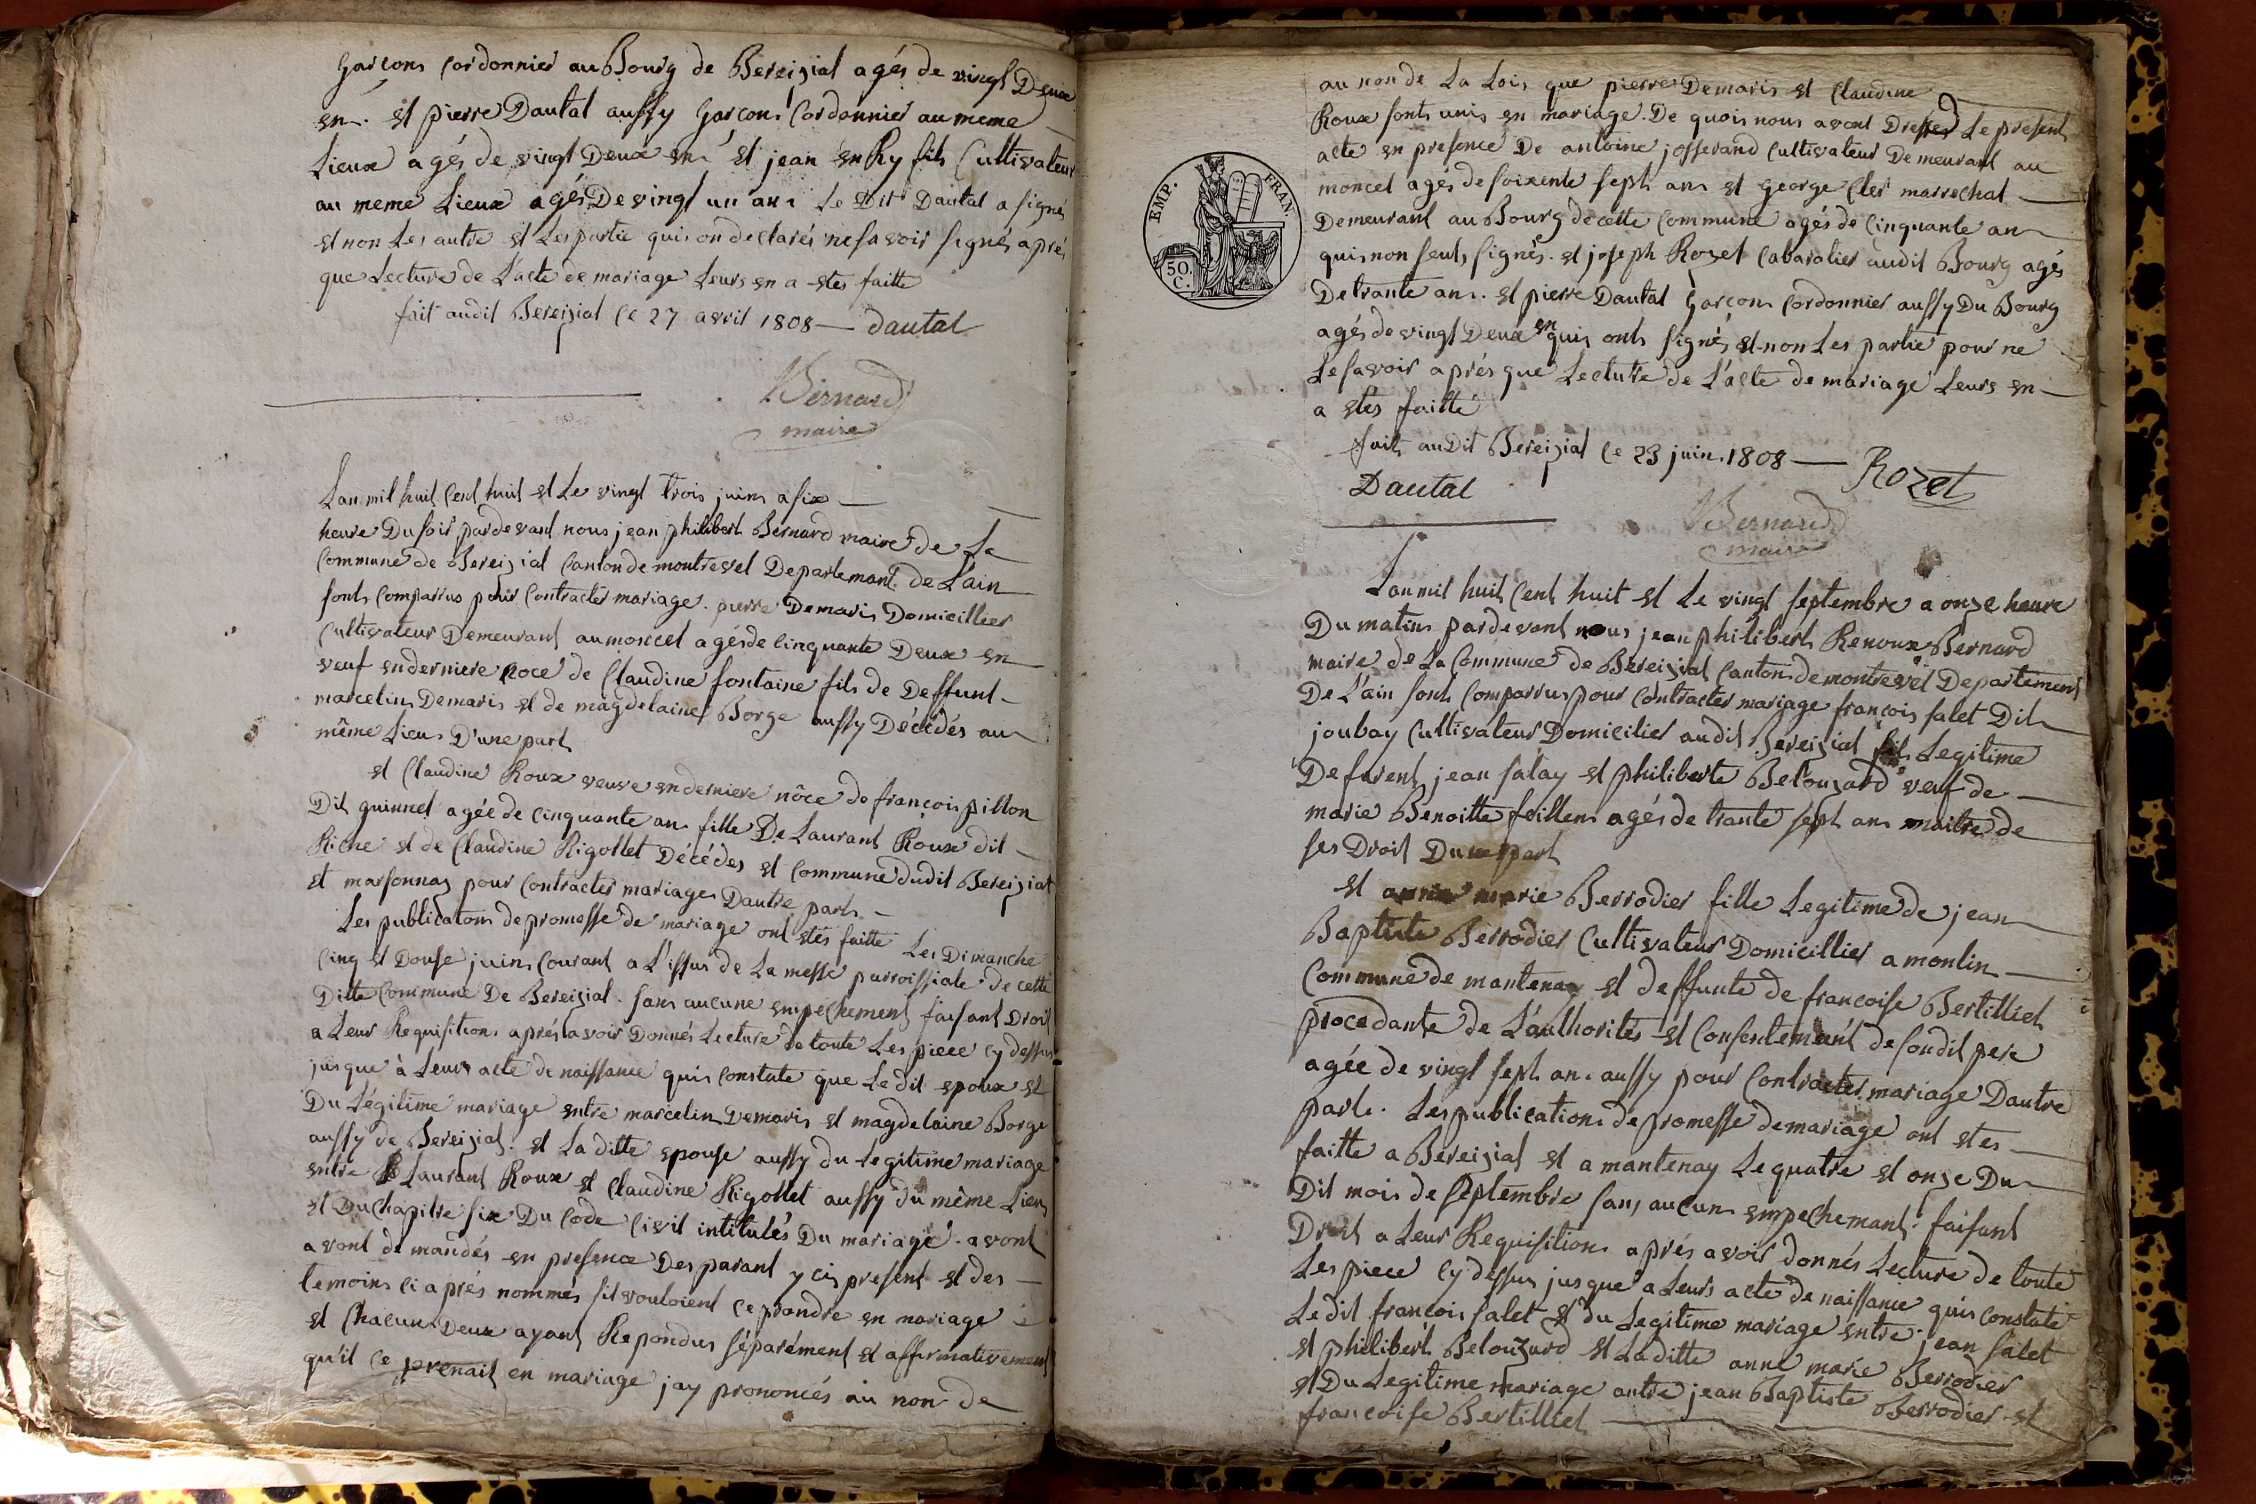 garcons cordonnier au Bourg de Bereizial agés de vingt Deux
en. et pierre Dautal aussy garcons Cordonnier au meme
Lieux agés de vingt Deux en. et jean enRy fils Cultivateur
au meme Lieux agés De vingt un ans Le Dit Dautal a signés
et non Les autre et Les partie quis on declarés ne savoir signés aprés
que Lecture de L'acte de mariage Leurs en a etés faitte
fait audit Bereizial ce 27 avril 1808 — Dautal
Bernard
maire
Lan mil huit Cent huit et Le vingt trois juins a six
heure Du soir pardevant nous jean philibert Bernard maire de La
Commune de Bereizial Canton de montrevel Departemant De L'ain
sonts Comparrus pour Contracter mariage. pierre Demaris Domicillier
Cultivateur Demeurant au moncel agés de cinquante Deux en
veuf en derniere noce de Claudine fontaine fils de Deffunt
marcelin Demaris et de magdelaine Borge aussy Décédés au
même Lieu D'une part
et Claudine Roux veuve en derniere nôce de francois pillon
Dit quinnet agée de cinquante an fille De Laurant Roux dit
Riche et de Claudine Rigollet Décédes et commune dudit Bereizial
et marsonnas pour Contracter mariage Dautre part.
Les publications de promesse de mariage ont etés faitte Les Dimanche
Cinq et Douse juins Courant a L'issus de La messe parroissiale de cette
Ditte Commune De Bereizial. sans aucune empechement faisant Droit
a Leur Requisitions aprés avoir Donnés Lecture de toute Les piece cy dessus
jusque à Leurs acte de naissance quis constate que Le dit epoux et
Du Légitime mariage entre marcelin Demaris et magdelaine Borge
aussy de Bereizial. et La ditte epouse aussy du Legitime mariage
entre Laurant Roux et Claudine Rigollet aussy du même Lieu
et Du Chapitre six Du Code Civil intitulés Du mariage. avont
avont demandés en presence Des parant y cis present et des
temoins ci aprés nommés sil vouloient ce prandre en mariage
et Chacuns Deux ayant Repondus séparément et affirmativement
qu'il ce prenait en mariage jay prononcés au non de
au non de La Lois que pierre Demaris et Claudine
Roux sonts unis en mariage. De quois nous avont Dresser Le present
acte en presence De antoine josserand Cultivateur Demeurant au
moncel agés de soixente sept ans et George Cler marrechal
Demeurant au Bourg de cette Commune agés de Cinquante an
quis non seuts signés. et joseph Rozet Cabaralier audit Bourg agés
De trante ans. et pierre Dautal garcons Cordonnier aussy Du Bourg
agés de vingt Deux en quis onts signés et non Les partie pour ne
Le savoir aprés que Lecture de L'acte de mariage Leurs en
a etés faitte
faits audit Bereizial ce 23 juins 1808 — Rozet
Dautal
Bernard
maire
EMP. FRAN.
50. C.
Lan mil huit Cent huit et Le vingt septembre a onze heure
Du matins pardevant nous jean philibert Renoux Bernard
maire de La Commune de Bereizial Canton de montrevel Departement
De L'ain sont Comparrus pour Contracter mariage françois salet Dit
joubay Cultivateur Domicilier audit Bereizial fils Legitime
De furent jean salay et philiberte Belouzard veuf de
marie Benoitte feillens agés de trante sept ans maitre de
ses Droit Dune part
et anne marie Berrodier fille Legitime de jean
Baptiste Berrodier Cultivateur Domicillier a monlin
Commune de mantenay et deffunte de francoise Bertilliet
procedante de L'authorités et Consentement de sondit pere
agée de vingt sept an. aussy pour Contracter mariage Dautre
part. Les publications de promesse de mariage ont etes
faitte a Bereizial et a mantenay Le quatre et onze Du
Dit mois de septembre sans aucuns empechemant. faisant
Droit a Leur Requisitions aprés avoir donnés Lecture de toute
Les piece cy dessus jusque a Leurs acte de naissance quis constate
Le dit francois salet et du Legitime mariage entre jean salet
et philibert Belouzard et La ditte anne marie Berrodier
et Du Legitime mariage antre jean Baptiste Berrodier et
francoise Bertilliet